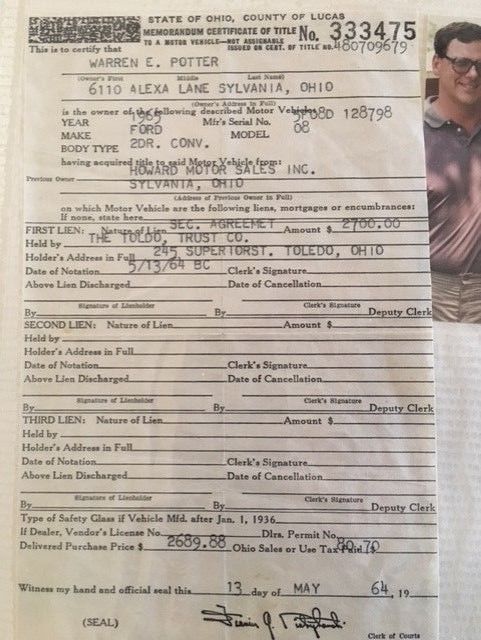 STATE OF OHIO, COUNTY OF LUCAS
MEMORANDUM CERTIFICATE OF TITLE No. 333475
TO A MOTOR VEHICLE—NOT ASSIGNABLE
ISSUED ON CERT. OF TITLE NO. 480709679
This is to certify that
WARREN E. POTTER
(Owner's First Middle Last Name)
6110 ALEXA LANE SYLVANIA, OHIO
(Owner's Address in Full)
is the owner of the following described Motor Vehicle:
YEAR Mfr's Serial No. 5F08D 128798
MAKE FORD MODEL 08
BODY TYPE 2DR. CONV.
having acquired title to said Motor Vehicle from:
HOWARD MOTOR SALES INC.
Previous Owner SYLVANIA, OHIO
(Address of Previous Owner in Full)
on which Motor Vehicle are the following liens, mortgages or encumbrances:
If none, state here
FIRST LIEN: Nature of Lien SEC. AGREEMET Amount $ 2700.00
Held by THE TOLDO, TRUST CO.
Holder's Address in Full 245 SUPERIORST. TOLEDO, OHIO
Date of Notation 5/13/64 BC Clerk's Signature
Above Lien Discharged Date of Cancellation
Signature of Lienholder Clerk's Signature
By By Deputy Clerk
SECOND LIEN: Nature of Lien Amount $
Held by
Holder's Address in Full
Date of Notation Clerk's Signature
Above Lien Discharged Date of Cancellation
Signature of Lienholder Clerk's Signature
By By Deputy Clerk
THIRD LIEN: Nature of Lien Amount $
Held by
Holder's Address in Full
Date of Notation Clerk's Signature
Above Lien Discharged Date of Cancellation
Signature of Lienholder Clerk's Signature
By By Deputy Clerk
Type of Safety Glass if Vehicle Mfd. after Jan. 1, 1936
If Dealer, Vendor's License No. Dlrs. Permit No.
Delivered Purchase Price $ 2689.88 Ohio Sales or Use Tax Paid $ 80.70
Witness my hand and official seal this 13 day of MAY 64, 19
(SEAL)
Clerk of Courts